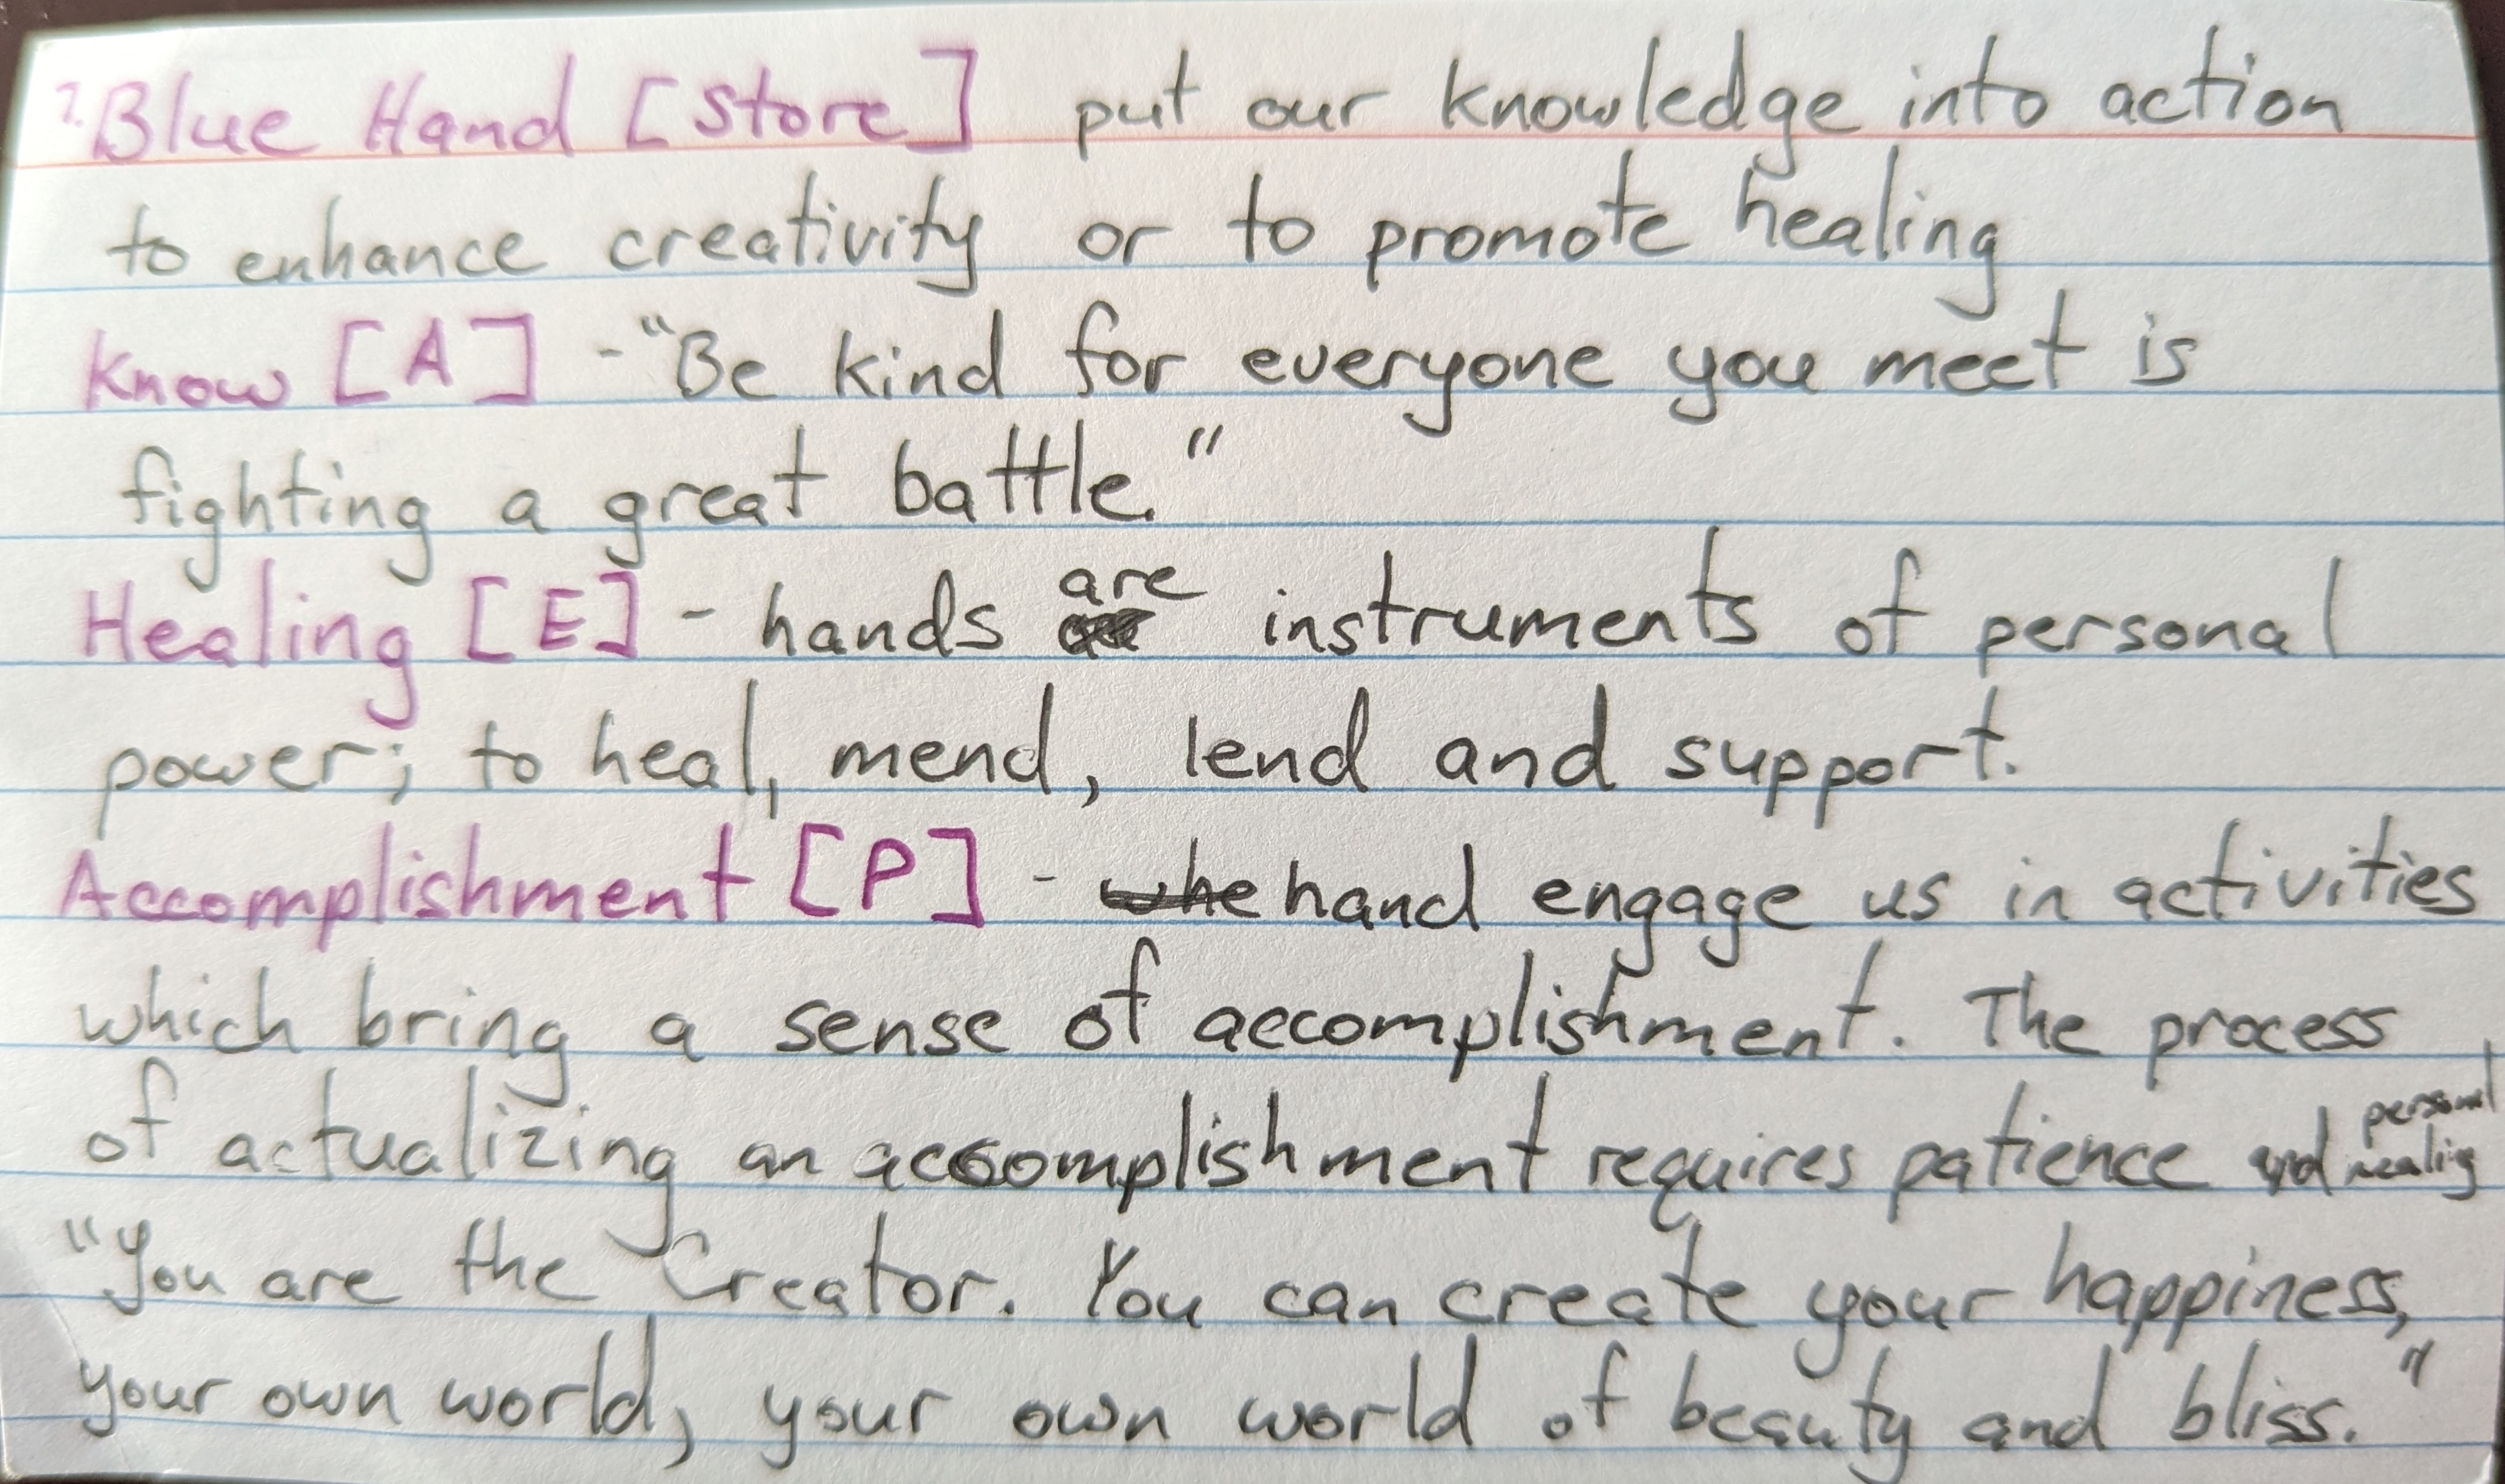 7. Blue Hand [Store] put our knowledge into action
to enhance creativity or to promote healing
Know [A] - "Be kind for everyone you meet is
fighting a great battle."
Healing [E] - hands are instruments of personal
power; to heal, mend, lend and support.
Accomplishment [P] - whe hand engage us in activities
which bring a sense of accomplishment. The process
of actualizing an accomplishment requires patience and personal healing
"You are the Creator. You can create your happiness,
your own world, your own world of beauty and bliss."